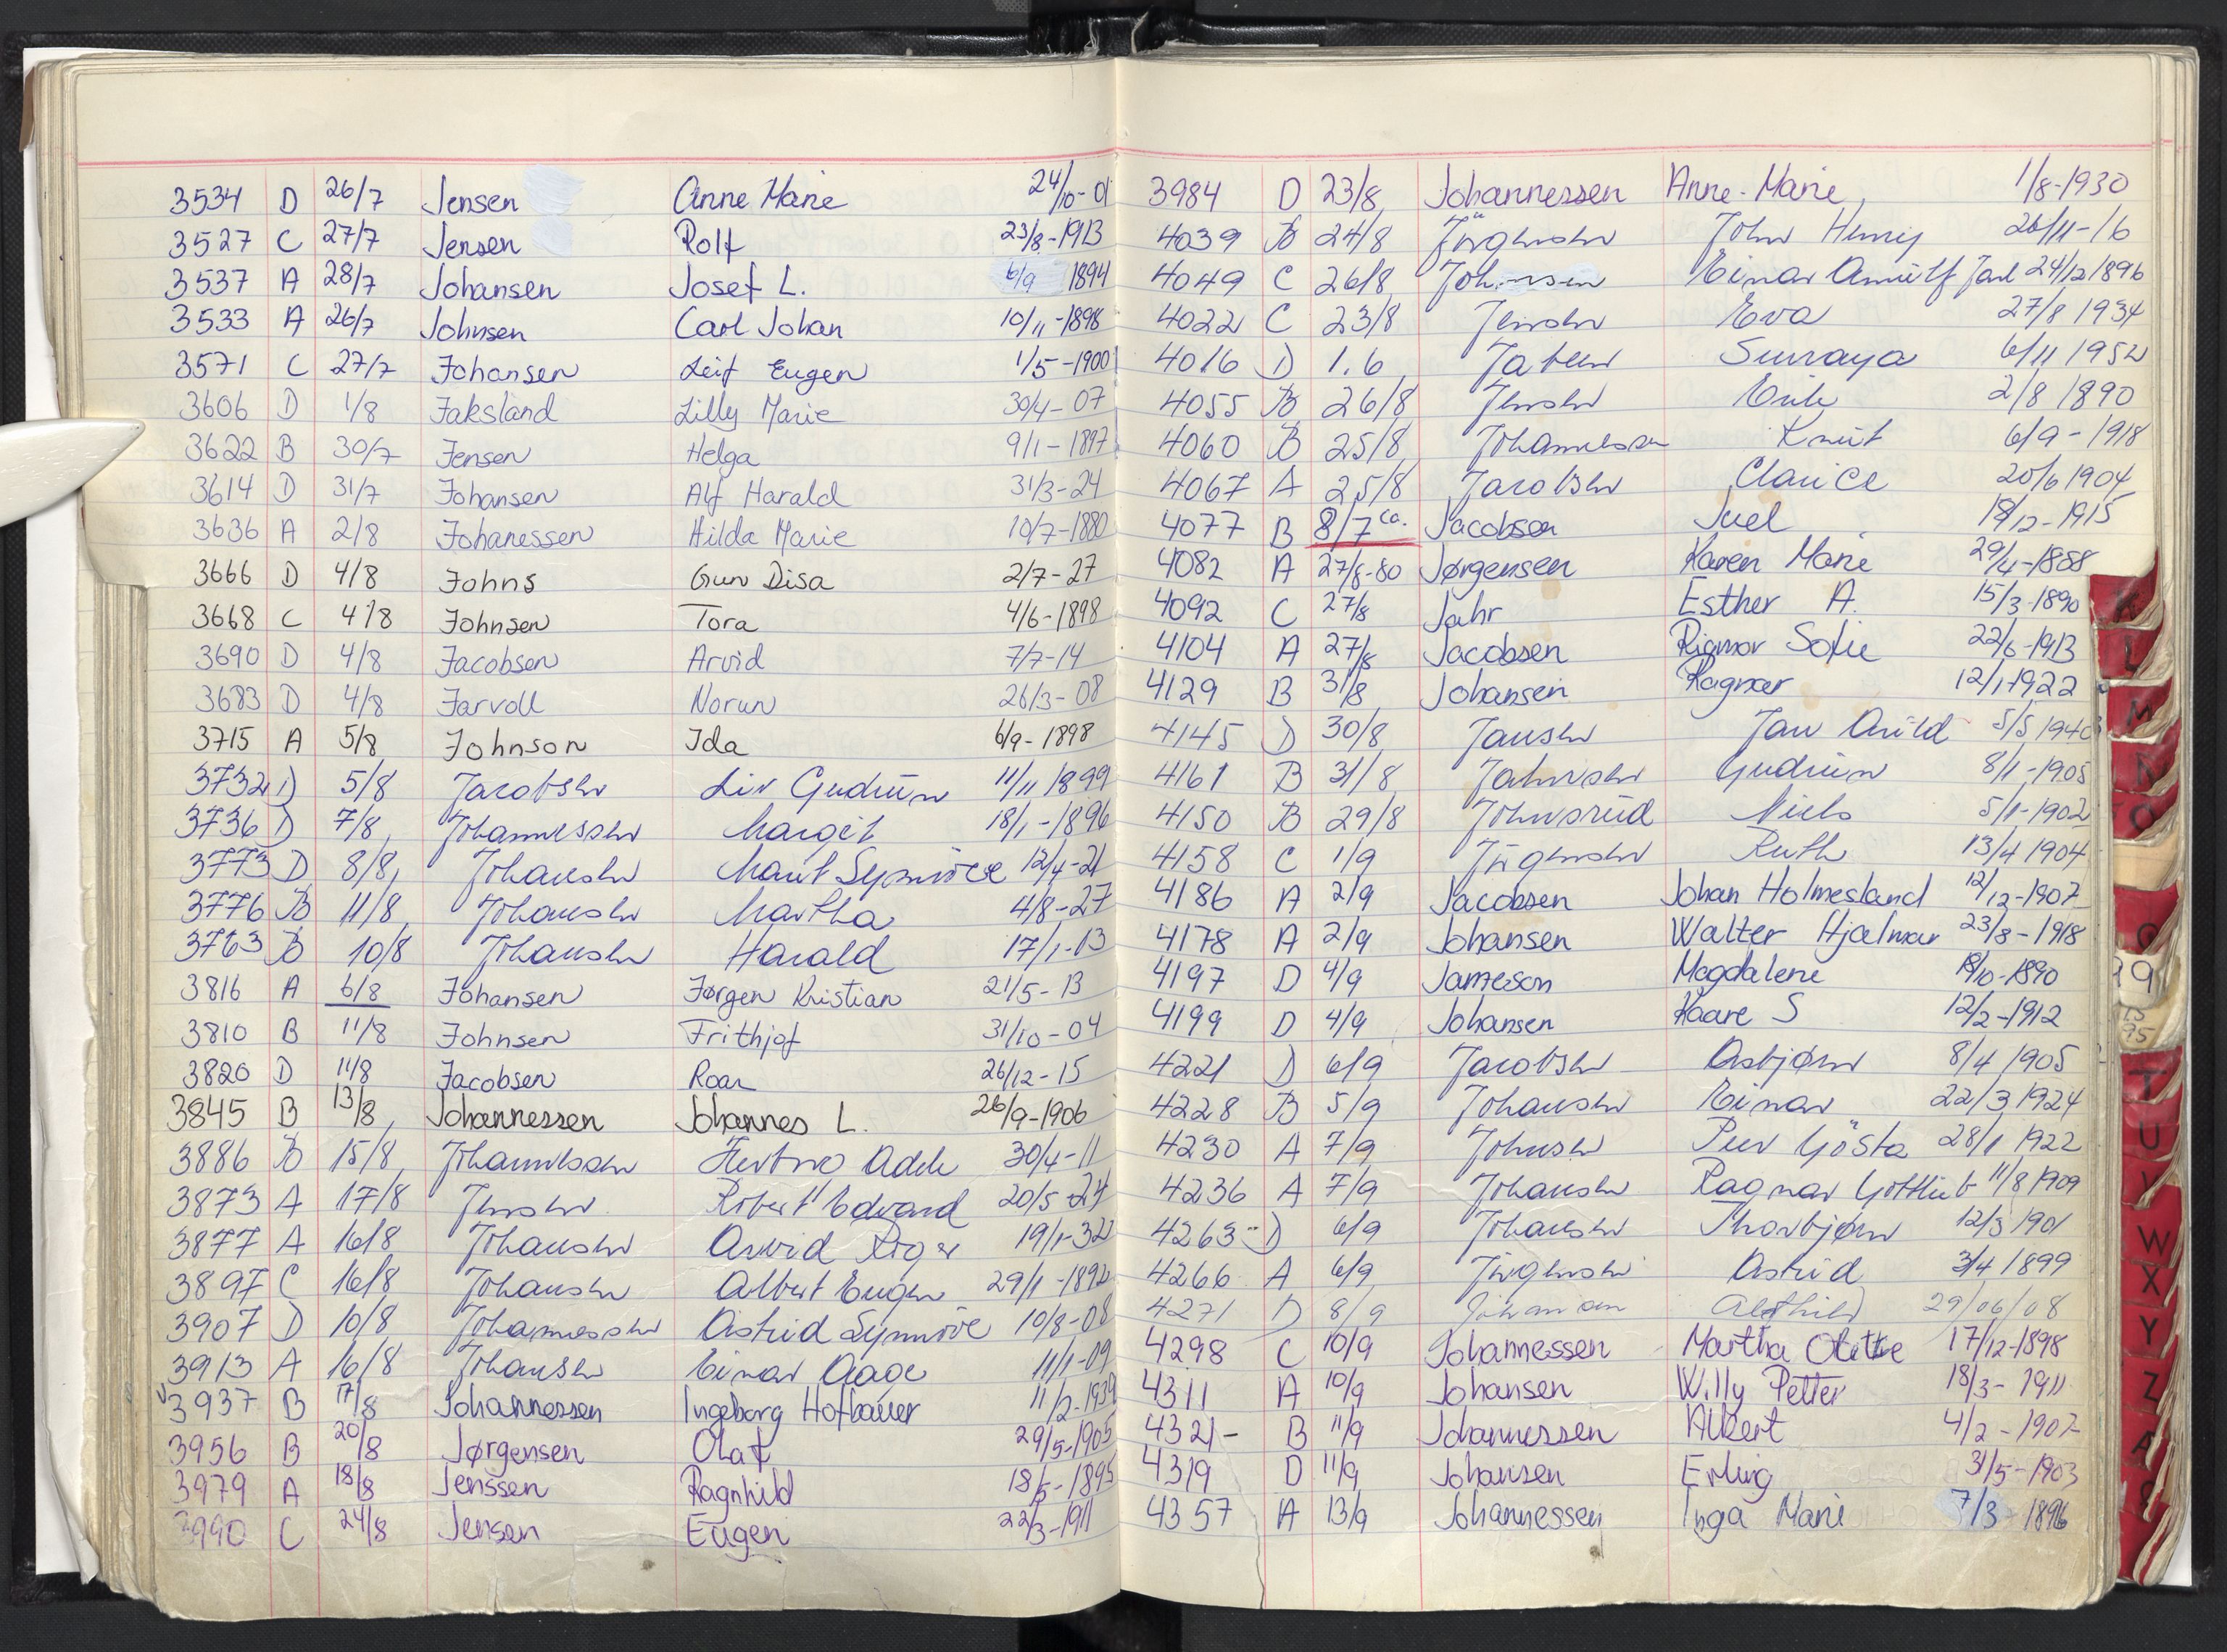 3534 D 26/7 Jensen Anne Marie 24/10-01
3527 C 27/7 Jensen Rolf 23/8-1913
3537 A 28/7 Johansen Josef L. 6/9 1894
3533 A 26/7 Johnsen Carl Johan 10/11-1898
3571 C 27/7 Johansen Leif Eugen 1/5-1900
3606 D 1/8 Jaksland Lilly Marie 30/4-07
3622 B 30/7 Jensen Helga 9/1-1897
3614 D 31/7 Johansen Alf Harald 31/3-24
3636 A 2/8 Johanessen Hilda Marie 10/7-1880
3666 D 4/8 Johns Gun Disa 2/7-27
3668 C 4/8 Johnsen Tora 4/6-1898
3690 D 4/8 Jacobsen Arvid 7/7-14
3683 D 4/8 Jarvoll Norun 26/3-08
3715 A 5/8 Johnson Ida 6/9-1898
3732 D 5/8 Jacobsen Liv Gudrun 11/11 1899
3736 D 7/8 Johannessen Margit 18/1-1896
3773 D 8/8 Johansen Marit Synnöve 12/4-21
3776 B 11/8 Johansen Martha 4/8-27
3763 B 10/8 Johansen Harald 17/1-13
3816 A 6/8 Johansen Jørgen Kristian 21/5-13
3810 B 11/8 Johnsen Frithjof 31/10-04
3820 D 11/8 Jacobsen Roar 26/12-15
3845 B 13/8 Johannessen Johannes L. 26/9-1906
3886 B 15/8 Johannessen 30/4-11
3873 A 17/8 Jensen Robert Edvard 20/5-24
3877 A 16/8 Johansen Arvid Roger 19/1-32
3897 C 16/8 Johansen Albert Eugen 29/1-1892
3907 D 10/8 Johannessen Astrid Synnöve 10/8-08
3913 A 16/8 Johansen Einar Aage 11/1-09
3937 B 17/8 Johannessen Ingeborg Hofbauer 11/2-1939
3956 B 20/8 Jørgensen Olaf 29/5-1905
3979 A 18/8 Jenssen Ragnhild 18/5-1895
3990 C 24/8 Jensen Eugen 22/3-1911
3984 D 23/8 Johannessen Anne-Marie 1/8-1930
4039 B 24/8 Jörgensen John Henry 26/11-16
4049 C 26/8 Johnsen Einar Arnulf Jarl 24/12 1896
4022 C 23/8 Jensen Eva 27/8 1934
4016 D 1.6 Surraya 6/11 1952
4055 B 26/8 Jensen Erik 2/8 1890
4060 B 25/8 Johannessen Knut 6/9-1918
4067 A 25/8 Jacobsen Clarice 20/6 1904
4077 B 8/7 ca. Jacobsen Juel 18/12-1915
4082 A 27/8-80 Jørgensen Karen Marie 29/4-1888
4092 C 27/8 Jahr Esther A. 15/3-1890
4104 A 27/8 Jacobsen Rigmor Sofie 22/6-1913
4129 B 31/8 Johansen Ragnar 12/1-1922
4145 D 30/8 Jansen Jan Arild 5/5 1940
4161 B 31/8 Gudrun 8/1-1905
4150 B 29/8 Johnsrud Niels 5/1-1902
4158 C 1/9 Jörgensen Ruth 13/4 1904
4186 A 2/9 Jacobsen Johan Holmesland 12/12-1907
4178 A 2/9 Johansen Walter Hjalmar 23/8-1918
4197 D 4/9 Jameson Magdalene 18/10-1890
4199 D 4/9 Johansen Kaare S 12/2-1912
4221 D 6/9 Jacobsen Asbjørn 8/4 1905
4228 B 5/9 Johansen Einar 22/3 1924
4230 A 7/9 Johnsen Per Gösta 28/1 1922
4236 A 7/9 Johansen Ragnar Gottlieb 11/8 1909
4263 D 6/9 Johansen Thorbjørn 12/3 1901
4266 A 6/9 Jörgensen Astrid 3/4 1899
4271 D 8/9 Johansen 29/06/08
4298 C 10/9 Johannessen Martha Otitte 17/12-1898
4311 A 10/9 Johansen Willy Petter 18/3-1911
4321- B 11/9 Johannessen Albert 4/2-1902
4319 D 11/9 Johansen Erling 31/5-1903
4357 A 13/9 Johannessen Inga Marie 7/3 1896
K
L
M
N
O
T
U
V
W
X
Y
Z